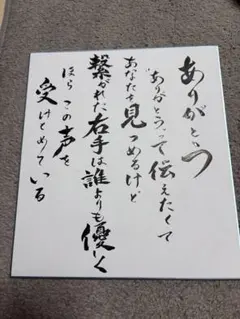 ありがとう
"ありがとう"って伝えたくて
あなたを見つめるけど
繋がれた右手は誰よりも優しく
ほら この声を
受けとめている